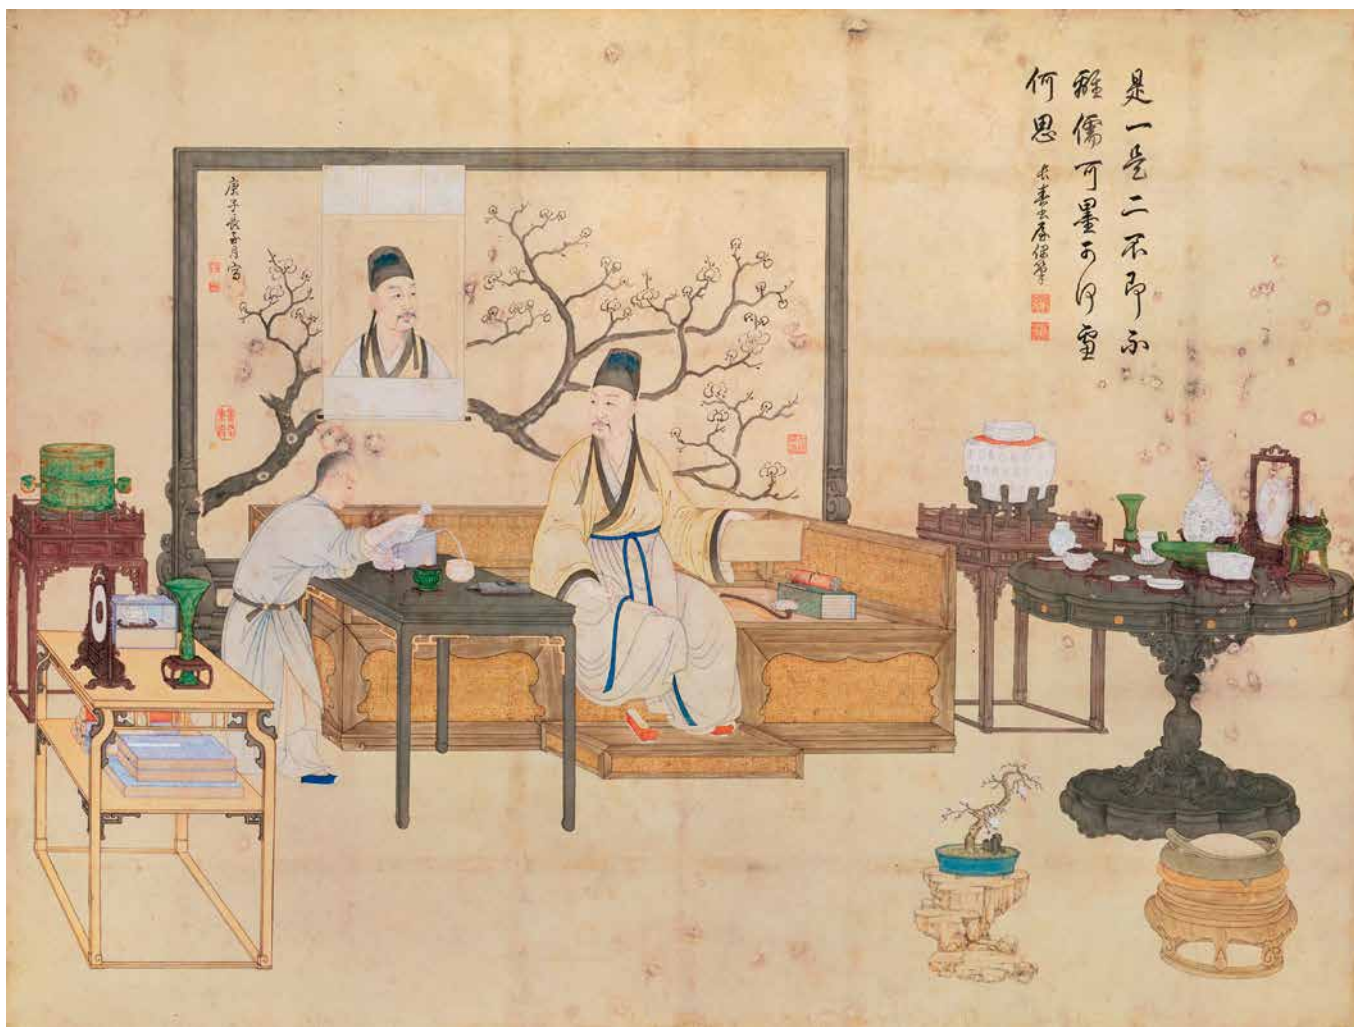 是一是二不即不
離儒可墨可何慮
何思 長春書屋偶筆
庚子長至月寫